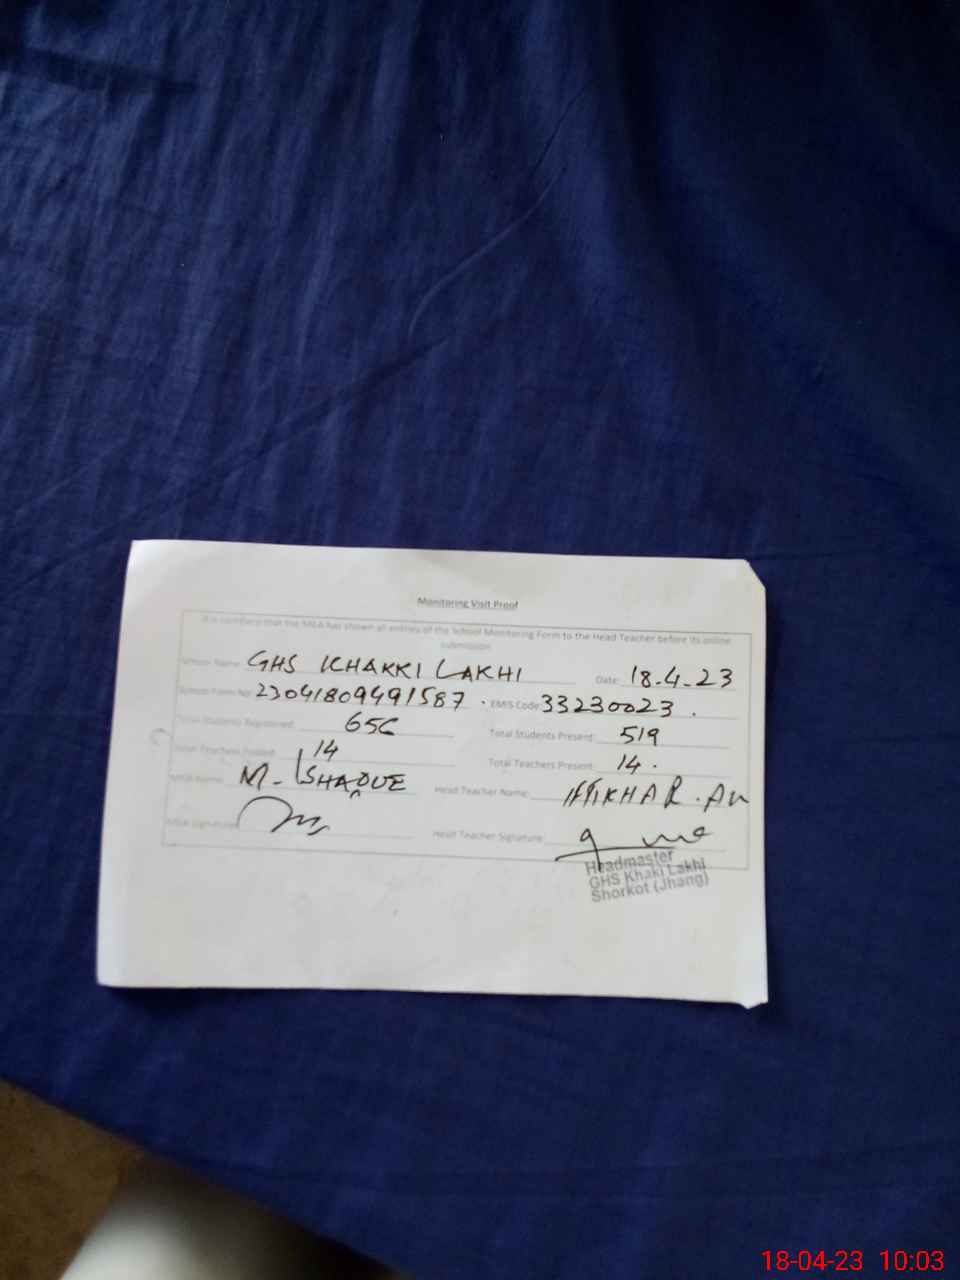 Monitoring Visit Proof
It is certified that the MEA has shown all entries of the School Monitoring Form to the Head Teacher before its online
submission
School Name: GHS KHAKKI LAKHI Date: 18-4-23
School Form No: 23041809491587 . EMIS Code: 33230023 .
Total Students Registered: 656 Total Students Present: 519
Total Teachers 14 Total Teachers Present: 14 .
MEA Name: M. ISHAQUE Head Teacher Name: IFTIKHAR
MEA Signature: Head Teacher Signature:
Headmaster
GHS Khaki Lakhi
Shorkot (Jhang)
18-04-23 10:03